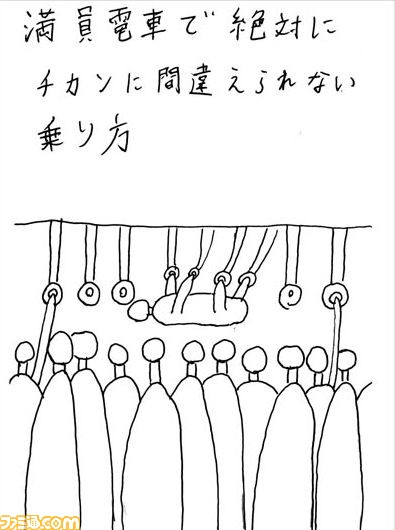 満員電車で絶対に
チカンに間違えられない
乗り方
ファミ通.com